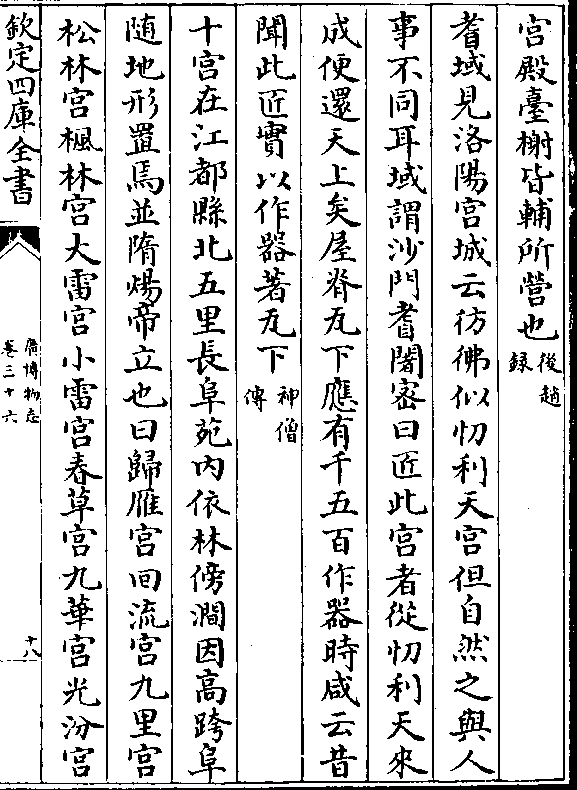 宮殿臺榭皆輔所營也後趙録
耆域見洛陽宮城云彷彿似忉利天宮但自然之與人
事不同耳域謂沙門耆闍密曰匠此宮者從忉利天來
成便還天上矣屋脊瓦下應有千五百作器時咸云昔
聞此匠實以作器著瓦下神僧傳
十宮在江都縣北五里長阜苑内依林傍澗因高跨阜
隨地形置焉並隋煬帝立也曰歸雁宮囬流宮九里宮
松林宮楓林宮大雷宮小雷宮春草宮九華宮光汾宮
欽定四庫全書
廣博物志
卷三十六
十八